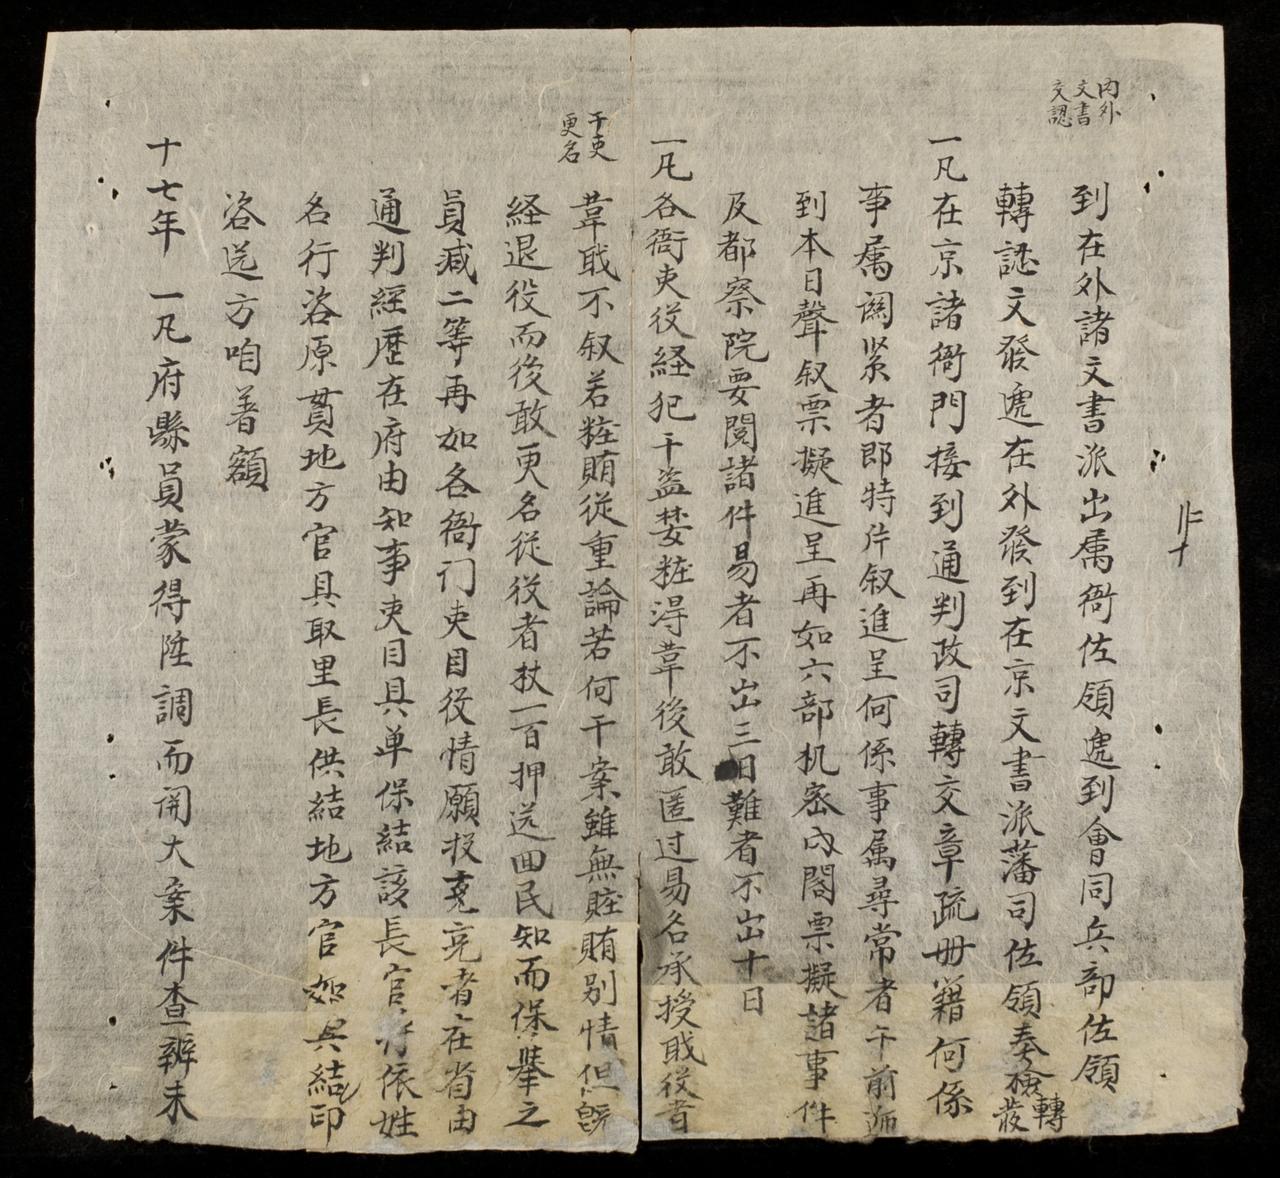 內外
文書
交認
到在外諸文書派出属衙佐領遞到會同兵部佐領
轉認文發遞在外發到在京文書派藩司佐領奉檢轉發
一凡在京諸衙門接到通判政司轉交章疏册籍何係
事属関紧者即特片叙進呈何係事属尋常者午前逓
到本日聲叙票擬進呈再如六部机密內閣票擬諸事件
及都察院要閱諸件易者不出三日難者不出十日
一凡各衙吏役経犯干盗婪粧得革後敢匿过易名承授戢役者
干吏
更名
革戢不叙若粧賄從重論若何干案雖無賍賄别情但既
経退役而後敢更名從役者杖一百押送回民知而保舉之
員减二等再如各衙门吏目役情願投充充者在省由
通判經歷在府由知事吏目具单保結該長官将依姓
名行咨原貫地方官具取里長供結地方官如具結印
咨送方咱著額
十七年 一凡府縣員蒙得陞調而開大案件查辦未